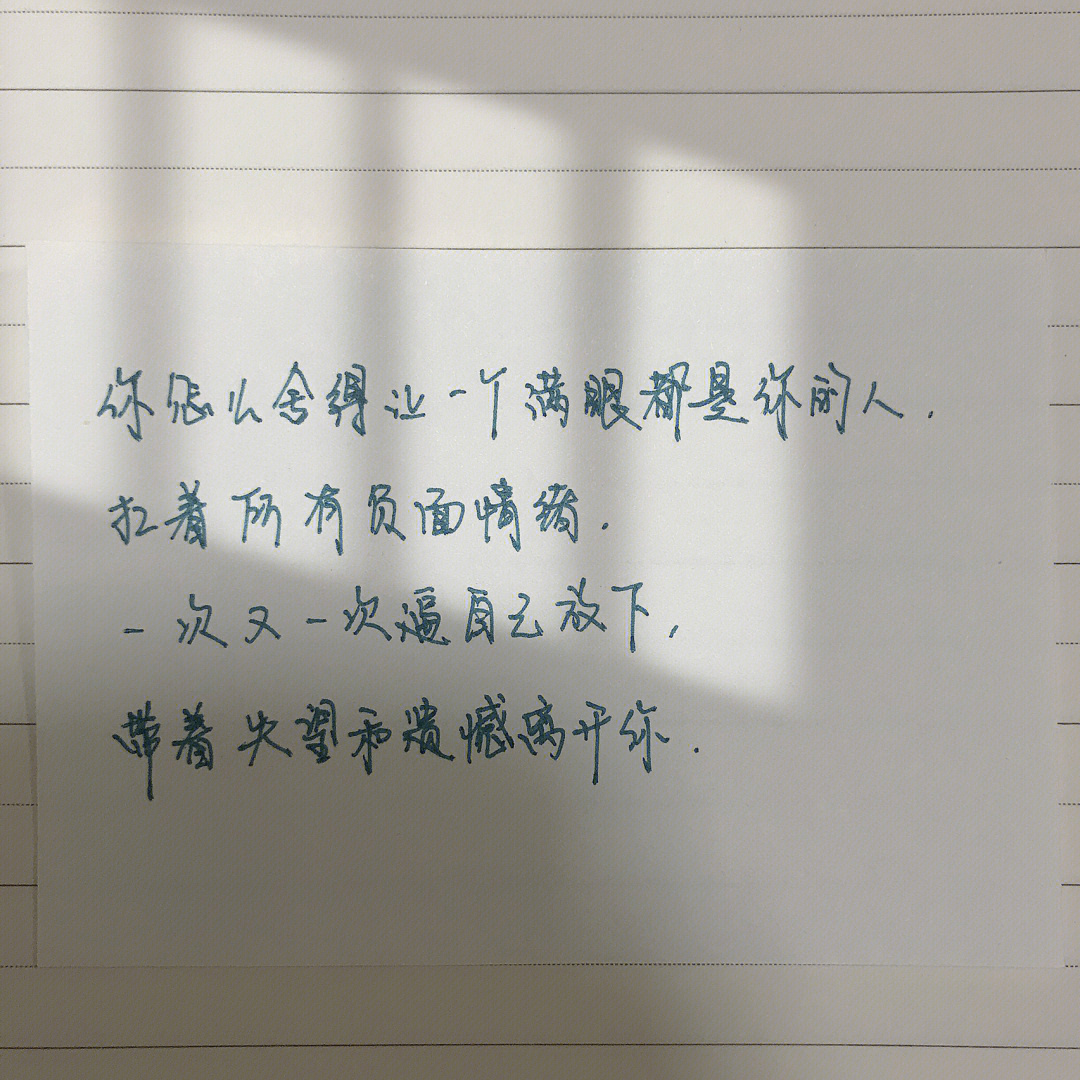 你怎么舍得让一个满眼都是你的人.
扛着所有负面情绪.
一次又一次逼自己放下,
带着失望和遗憾离开你.